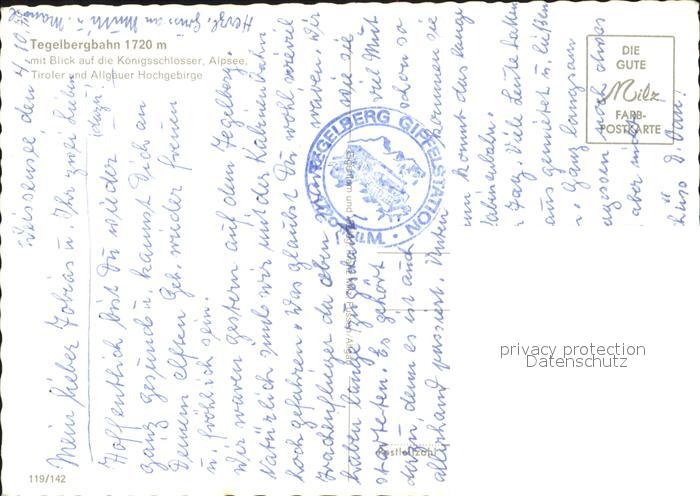 Tegelbergbahn 1720 m
mit Blick auf die Königsschlösser, Alpsee,
Tiroler und Allgäuer Hochgebirge
DIE
GUTE
Milz
FARB-
POSTKARTE
TEGELBERG GIPFELSTATION
Weissensee, den 4/10.
Mein lieber Tobias u. Ihr zwei Lieben
Hoffentlich bist Du wieder
ganz gesund u. kannst Dich an
Deinem elften Geb. wieder freuen
u. fröhlich sein.
Wir waren gestern auf dem Tegelberg.
Natürlich sind wir mit der Kabinenbahn
hochgefahren. Was glaubst Du wohl wieviel
Drachenflieger da oben waren. Wir
haben lange zugeschaut wie sie
starteten. Es gehört viel Mut
dazu, denn es ist auch schon so
allerhand passiert. Unten kommen sie
kommt das lange
Kabinenbahn.
Tag. Viele Leute hatten
aus gemietet u. ließen
Ganz langsam
noch etwas
aber
Herzl. Gruss an
Postleitzahl
119/142
privacy protection
Datenschutz